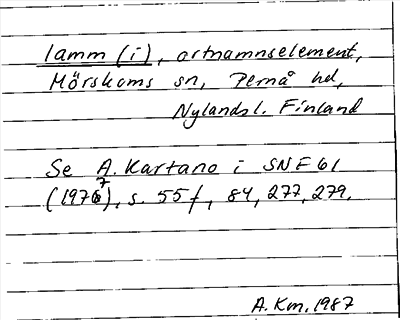 lamm (i), ortnamnselement,
Mörskoms sn, Pernå hd,
Nylandsl. Finland
Se A. Kartano i SNF 61
(1977), s. 55 f, 84, 277, 279.
A. Km. 1987